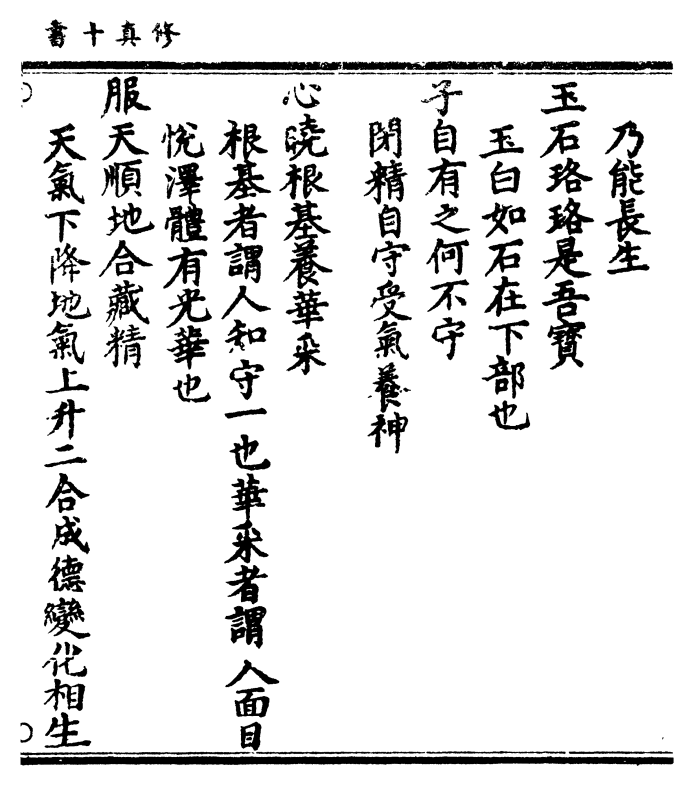 修真十書
乃能長生
玉石珞珞是吾寶
玉白如石在下部也
子自有之何不守
閉精自守受氣養神
心曉根基養華采
根基者謂人知守一也華采者謂人面目
悅澤體有光華也
服天順地合藏精
天氣下降地氣上升二合成德變化相生